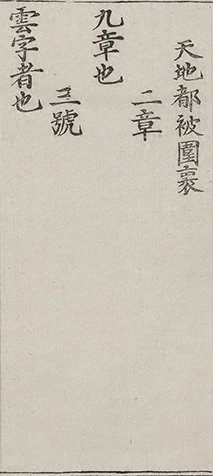 天地都被圍裹
二章
九章也
三號
雲字者也